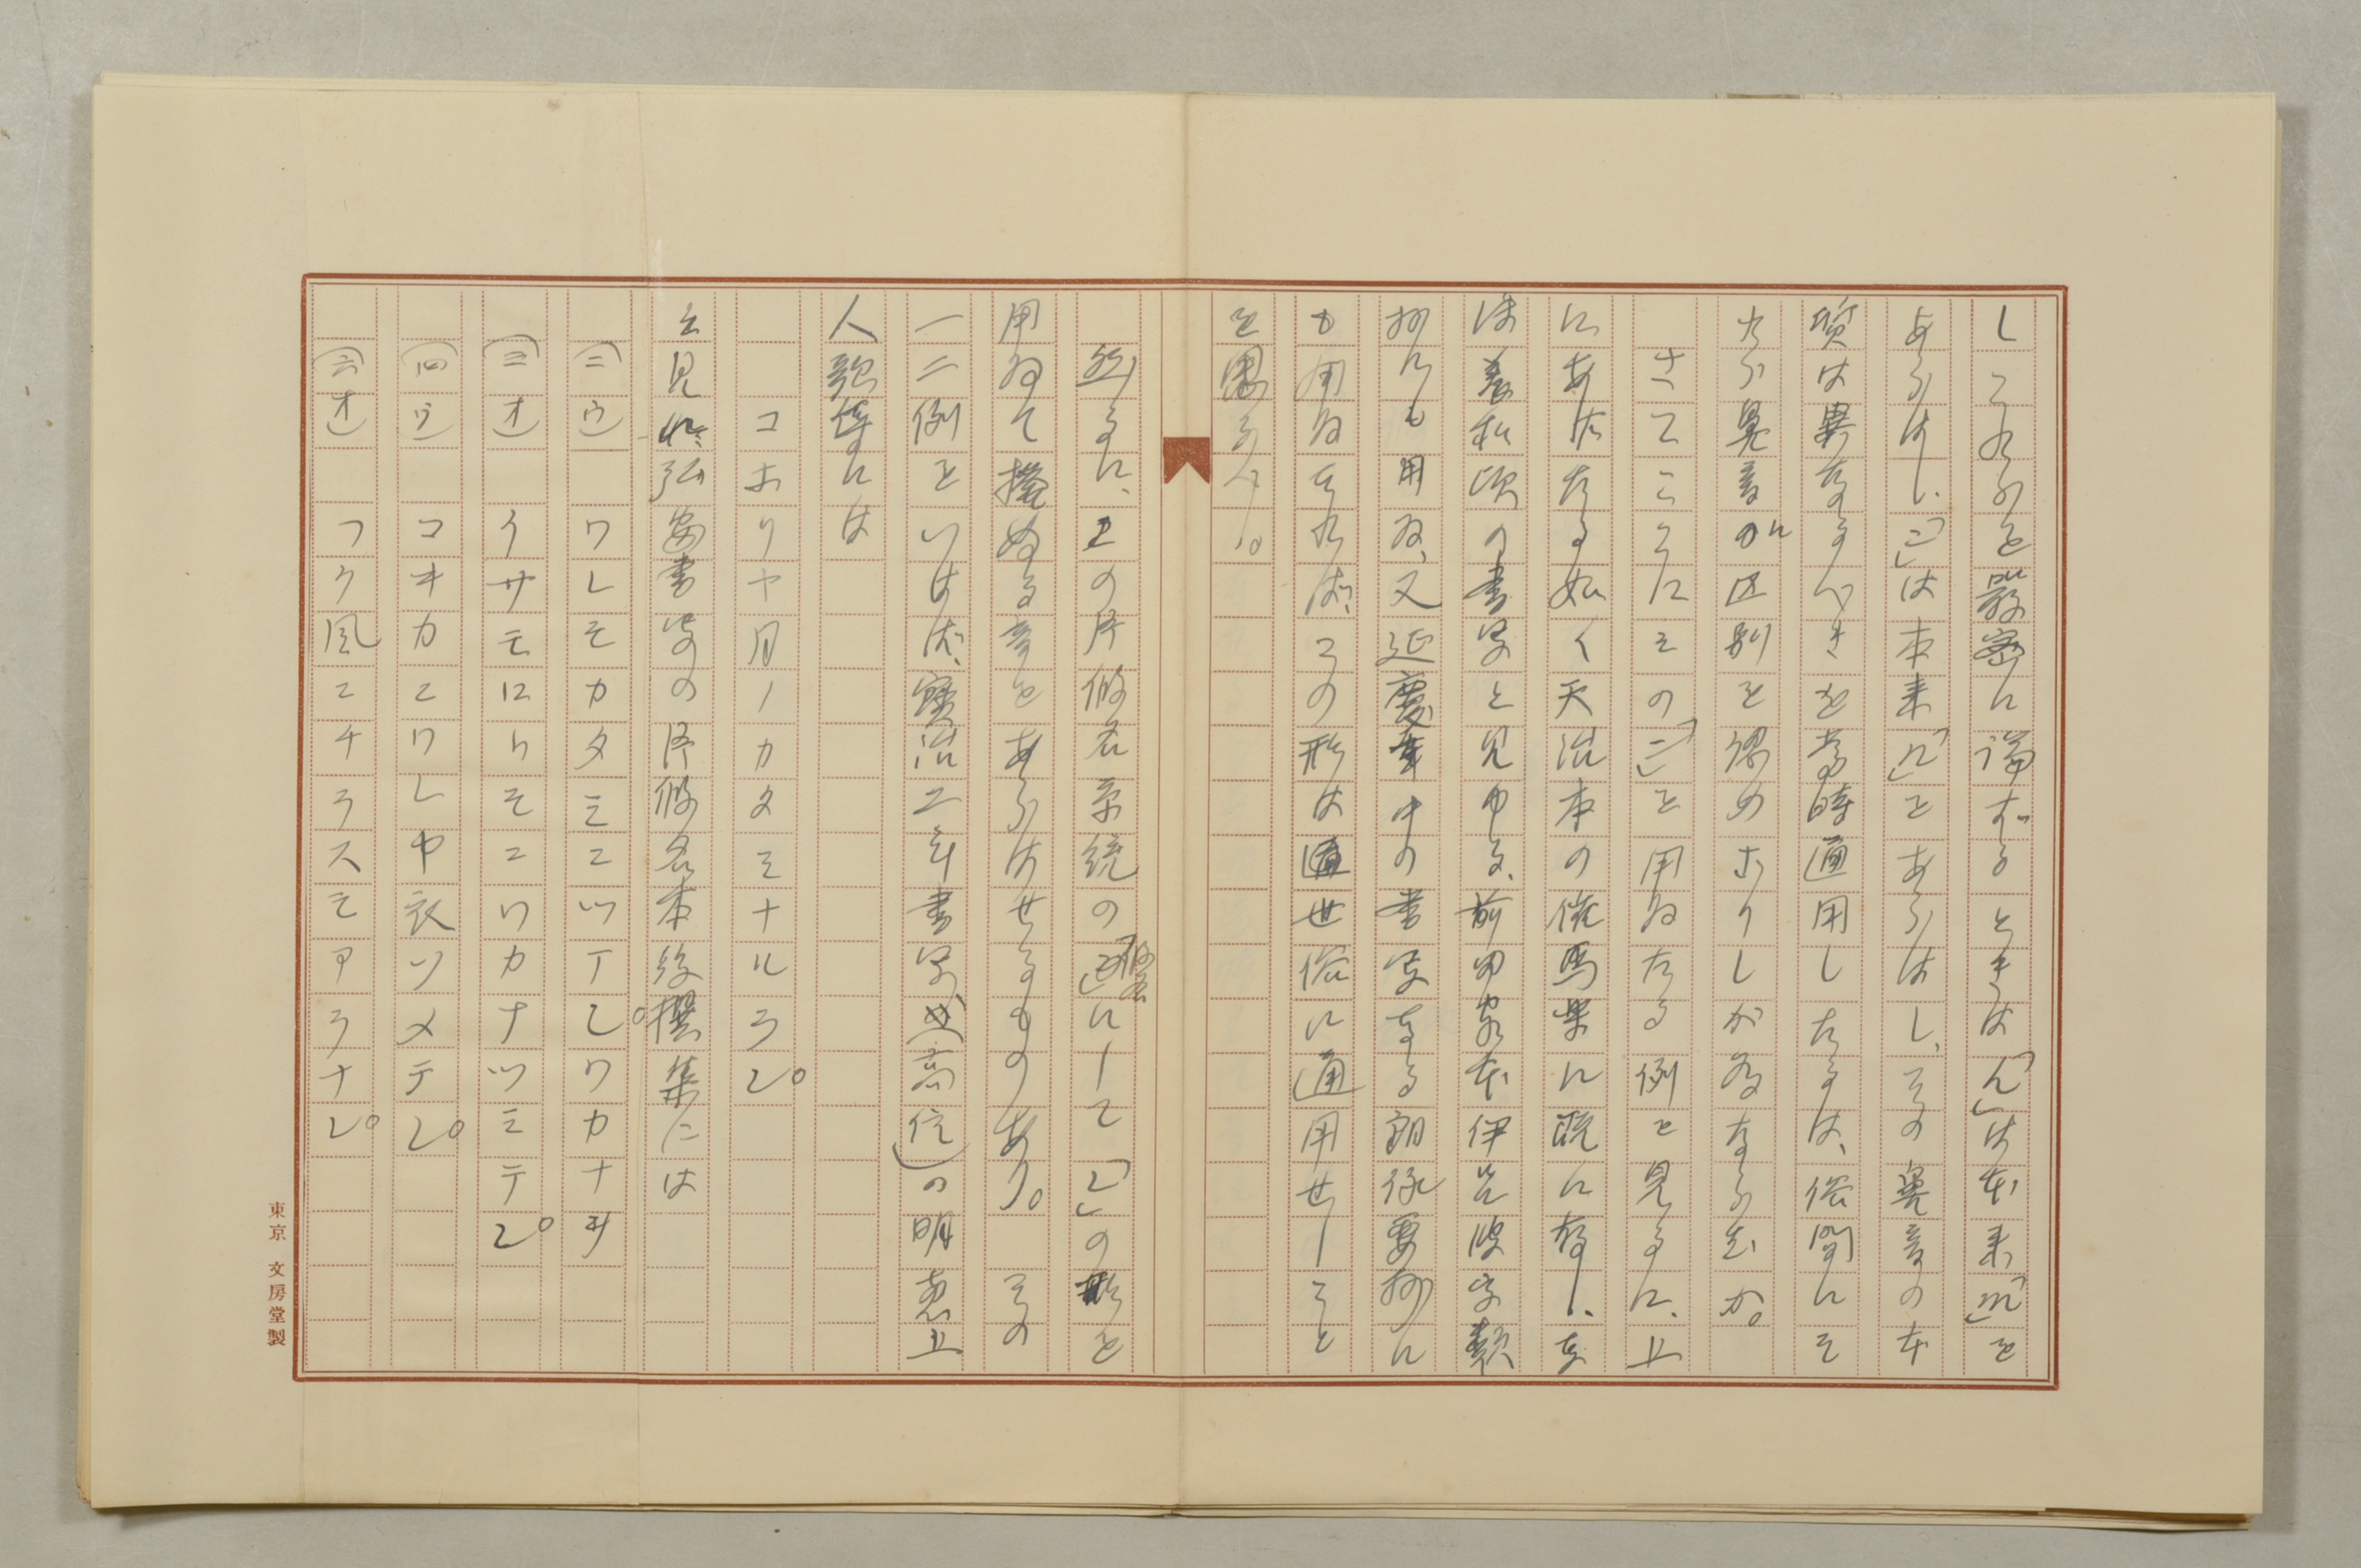 しこれらを嚴密に論ずるときは「ん」は本来「m」を
あらはし、「ニ」は本来「n」をあらはし、その鼻音の本
質は異なるべきを當時通用したるは、俗間にそ
れら鼻音の区別を認めざりしが為なるべきか。
さてこゝにその「ニ」を用ゐたる例を見るに、上
にあげたる如く天治本の催馬楽に既に存し、な
ほ養和頃の書写と見ゆる、前田家本伊呂波字類
抄にも用ゐ、又延慶年中の書写なる朗詠要抄に
も用ゐたれば、この形は世俗に通用せしこと
を思ふべし。
然るに、上の片仮名系統の仮名にして「レ」の形を
用ゐて撥ぬる音をあらはせるものあり。その
一二例をいはば、寳治二年書写(高信)の明恵上
人歌集には
コホリヤ月ノカタミナルラレ。
と見え、弘安書写の片仮名本後撰集には
(二ウ) ワレモカタミニツテレ。ワカナヲ
(三オ) クサモロトモニワカナツミテレ。
(四ウ) コキカミワレヤ衣ソメテレ。
(六オ) フク風ニチラスモアラナレ。
東京 文房堂製